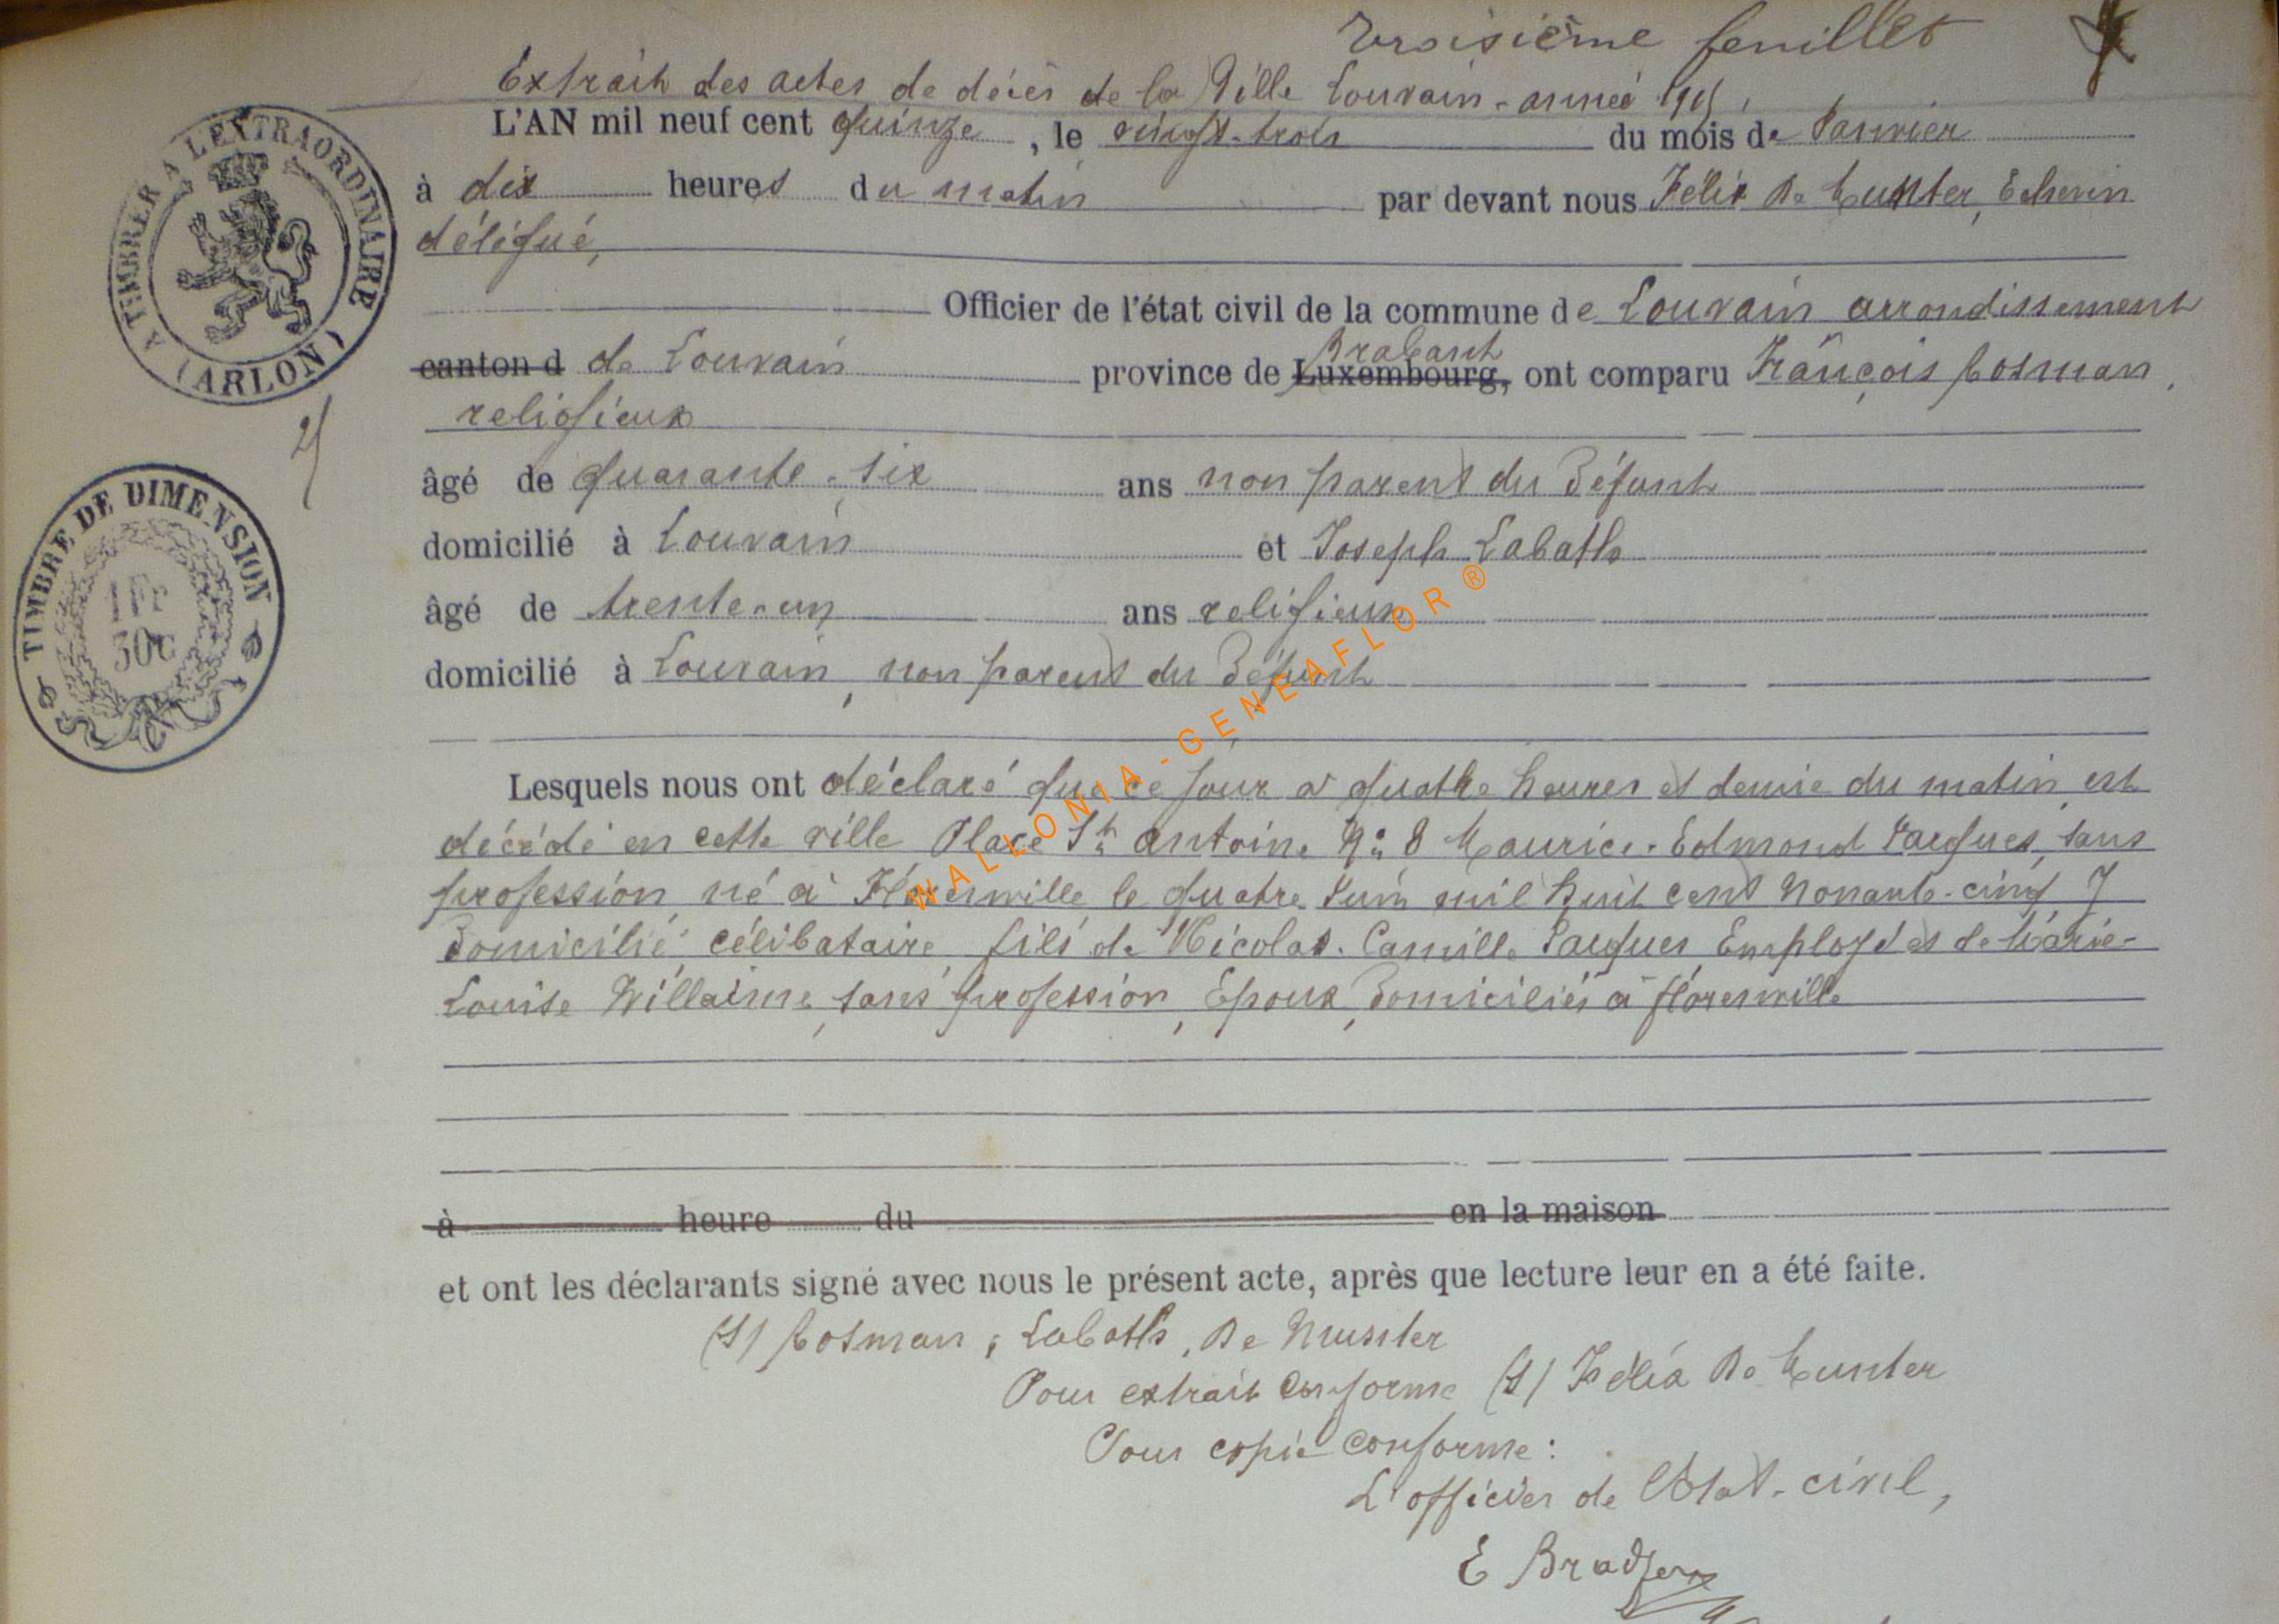 Troisième feuillet
Extrait des actes de décès de la Ville Louvain - année 1915.
L'AN mil neuf cent quinze, le vingt-trois du mois de Janvier
à dix heures du matin par devant nous Félix De Munter, Echevin
délégué,
Officier de l'état civil de la commune de Louvain arrondissement
canton d de Louvain province de Luxembourg, Brabant ont comparu François Cosman,
religieux
âgé de quarante-six ans non parent du Défunt
domicilié à Louvain et Joseph Labath
âgé de trente-un ans religieux
domicilié à Louvain, non parent du Défunt
Lesquels nous ont déclaré que ce jour à quatre heures et demie du matin est
décédé en cette ville Place St Antoine No 8 Maurice-Edmond Jacques, sans
profession, né à Florenville le quatre Juin mil huit cent nonante-cinq y
Domicilié célibataire, fils de Nicolas-Camille Jacques Employé et de Marie-
Louise Willaime, sans profession, Epoux, Domiciliés à florenville
à heure du en la maison
et ont les déclarants signé avec nous le présent acte, après que lecture leur en a été faite.
(S) Cosman, Labath, De Munter
Pour extrait conforme (S) Félix De Munter
Pour copie conforme :
L'officier de l'Etat-civil,
E
A TIMBRER A L'EXTRAORDINAIRE
(ARLON)
TIMBRE DE DIMENSION
1Fr
50c
WALLONIA-GENEAFLOR ®